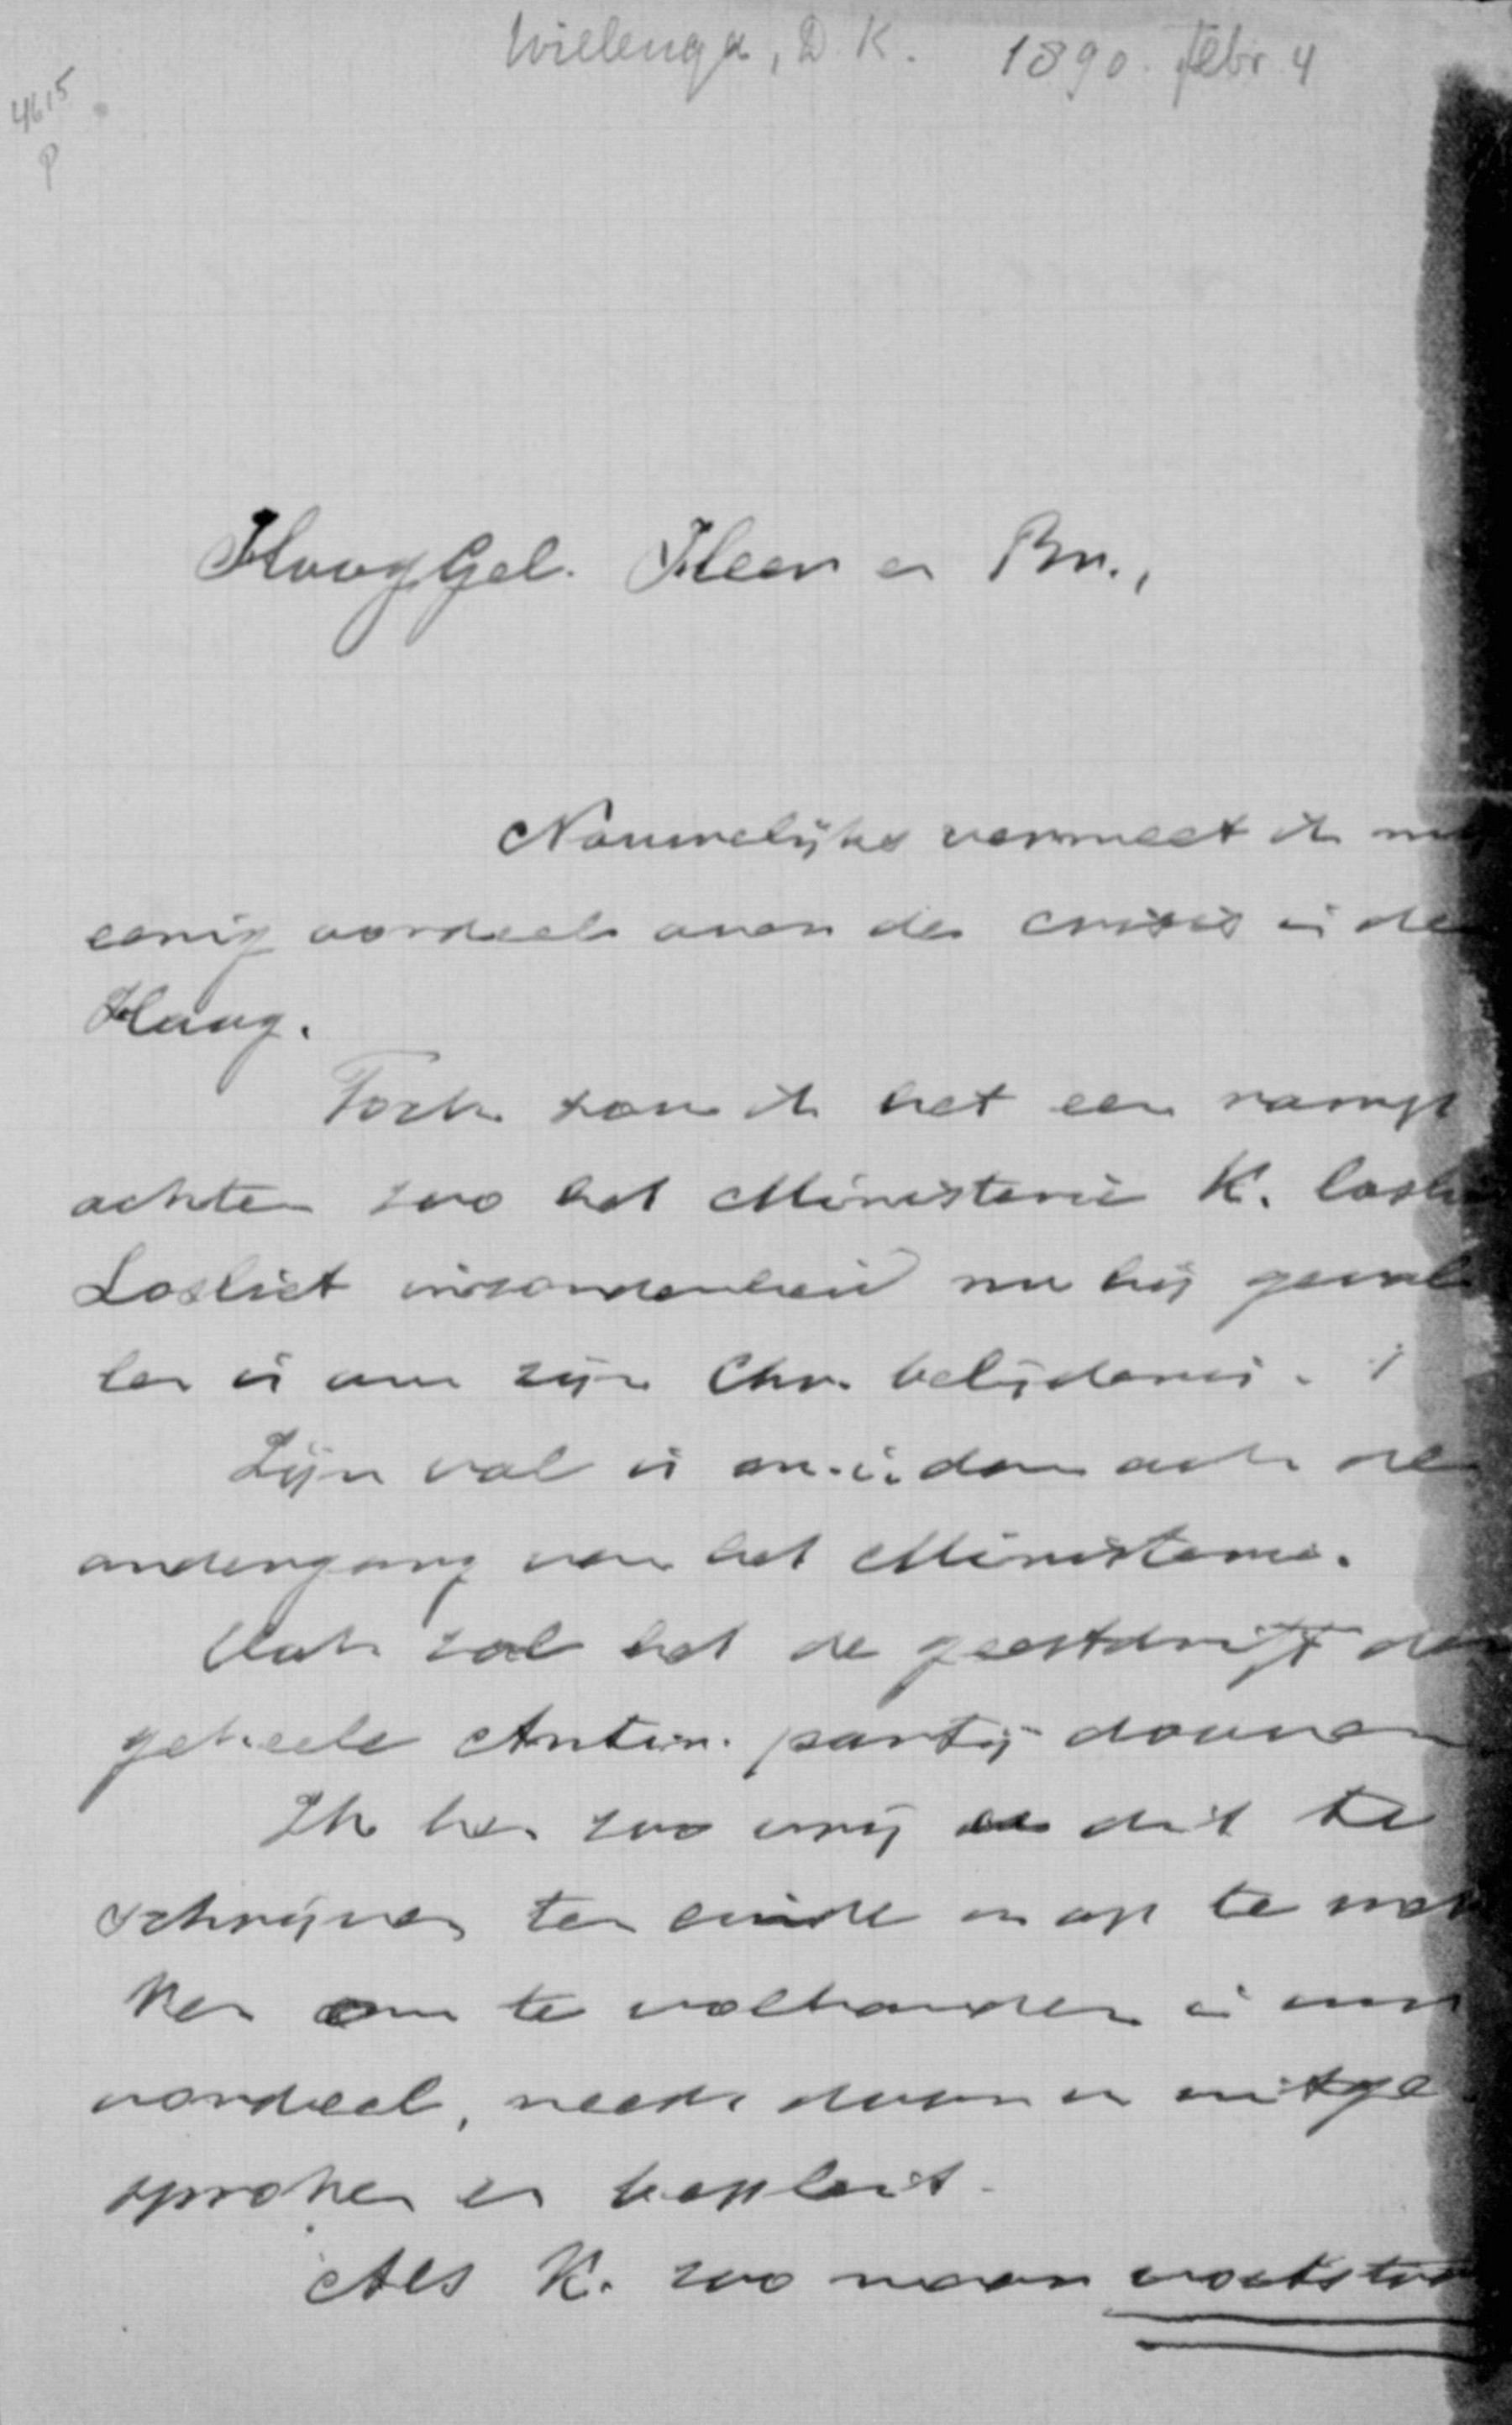 Wielenga, D. K. 1890. febr. 4
4615
P
HoogGel. Heer en Br.,
Nauwelijks vermeet ik mij
eenig oordeel over de crisis in de
Haag.
Toch zou ik het een ramp
achten zoo het Ministerie K. losliet
Losliet inzonderheid nu hij geval
len is om zijn Chr. belijdenis.
Zijn val is m.i. dan ook de
ondergang van het Ministerie.
Ook zal het de geestdrift der
geheele Antir. partij dooven
Ik ben zoo vrij dit te
schrijven ten einde u op te wek
ken om te volharden in uw
oordeel, reeds door u uitge
sproken en bepleit.
Als K. zoo maar